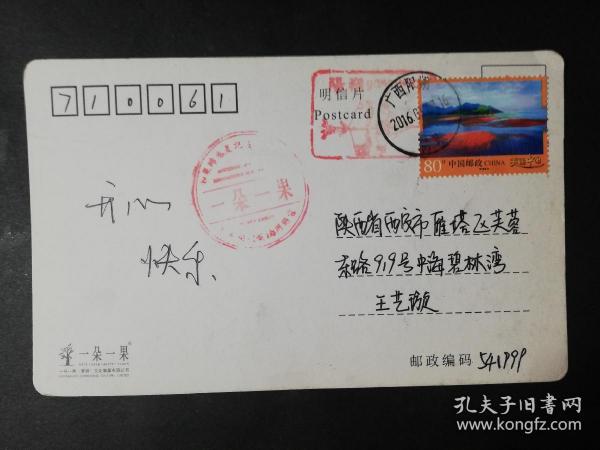 710061
明信片
Postcard
广西阳
2016.6
80分 中国邮政 CHINA 美丽中国
一朵一果
开心
快乐
陕西省西安市雁塔区芙蓉
东路99号中海碧林湾
王艺璇
一朵一果
邮政编码 541999
孔夫子旧书网
www.kongfz.com